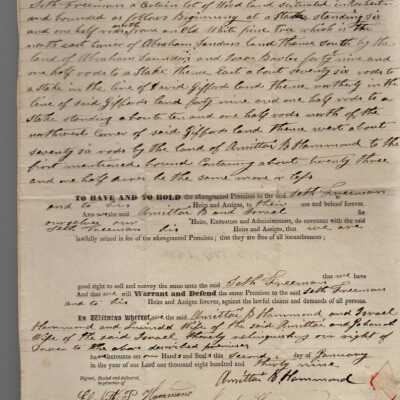 Seth Freeman a Certain lot of Wood land situated in
and bounded as follows Beginning at a Stake standing six
and one half rods from an Old White pine tree which is the
north
north east corner of Abraham Saunders land thence South by the
land of Abraham Saunders and Isaac Bowles forty nine and
one half rods to a Stake thence East about seventy six rods to
a Stake in the line of David Giffords land thence northerly in the
line of said Giffords land forty nine and one half rods to a
stake standing about ten and one half rods north of the
northwest corner of said Giffords land thence west about
seventy six rods by the land of Amittai B Hammond to the
first mentioned bound Containing about twenty three
and one half acres be the same more or less
TO HAVE AND TO HOLD the aforegranted Premises to the said Seth Freeman
and to his Heirs and Assigns, to their use and behoof forever.
And we the said Amittai B and Israel do
ourselves our Heirs, Executors and Administrators, do covenant with the said
Seth Freeman his Heirs and Assigns, that we are
lawfully seized in fee of the aforegranted Premises; that they are free of all incumbrances;
that we have
good right to sell and convey the same unto the said Seth Freeman
And that we will Warrant and Defend the same Premises to the said Seth Freeman
and to his Heirs and Assigns forever, against the lawful claims and demands of all persons.
In Witness whereof, we the said Amittai B Hammond and Israel
Hammond and Wife of the said Amittai and
Wife of the said Israel hereby relinquishing our right of
Dower to the above described premises
have hereunto set our Hands and Seals this Second day of January
in the year of our Lord one thousand eight hundred and thirty nine
Signed, Sealed and delivered,
in presence of
Amittai B Hammond
Hammond